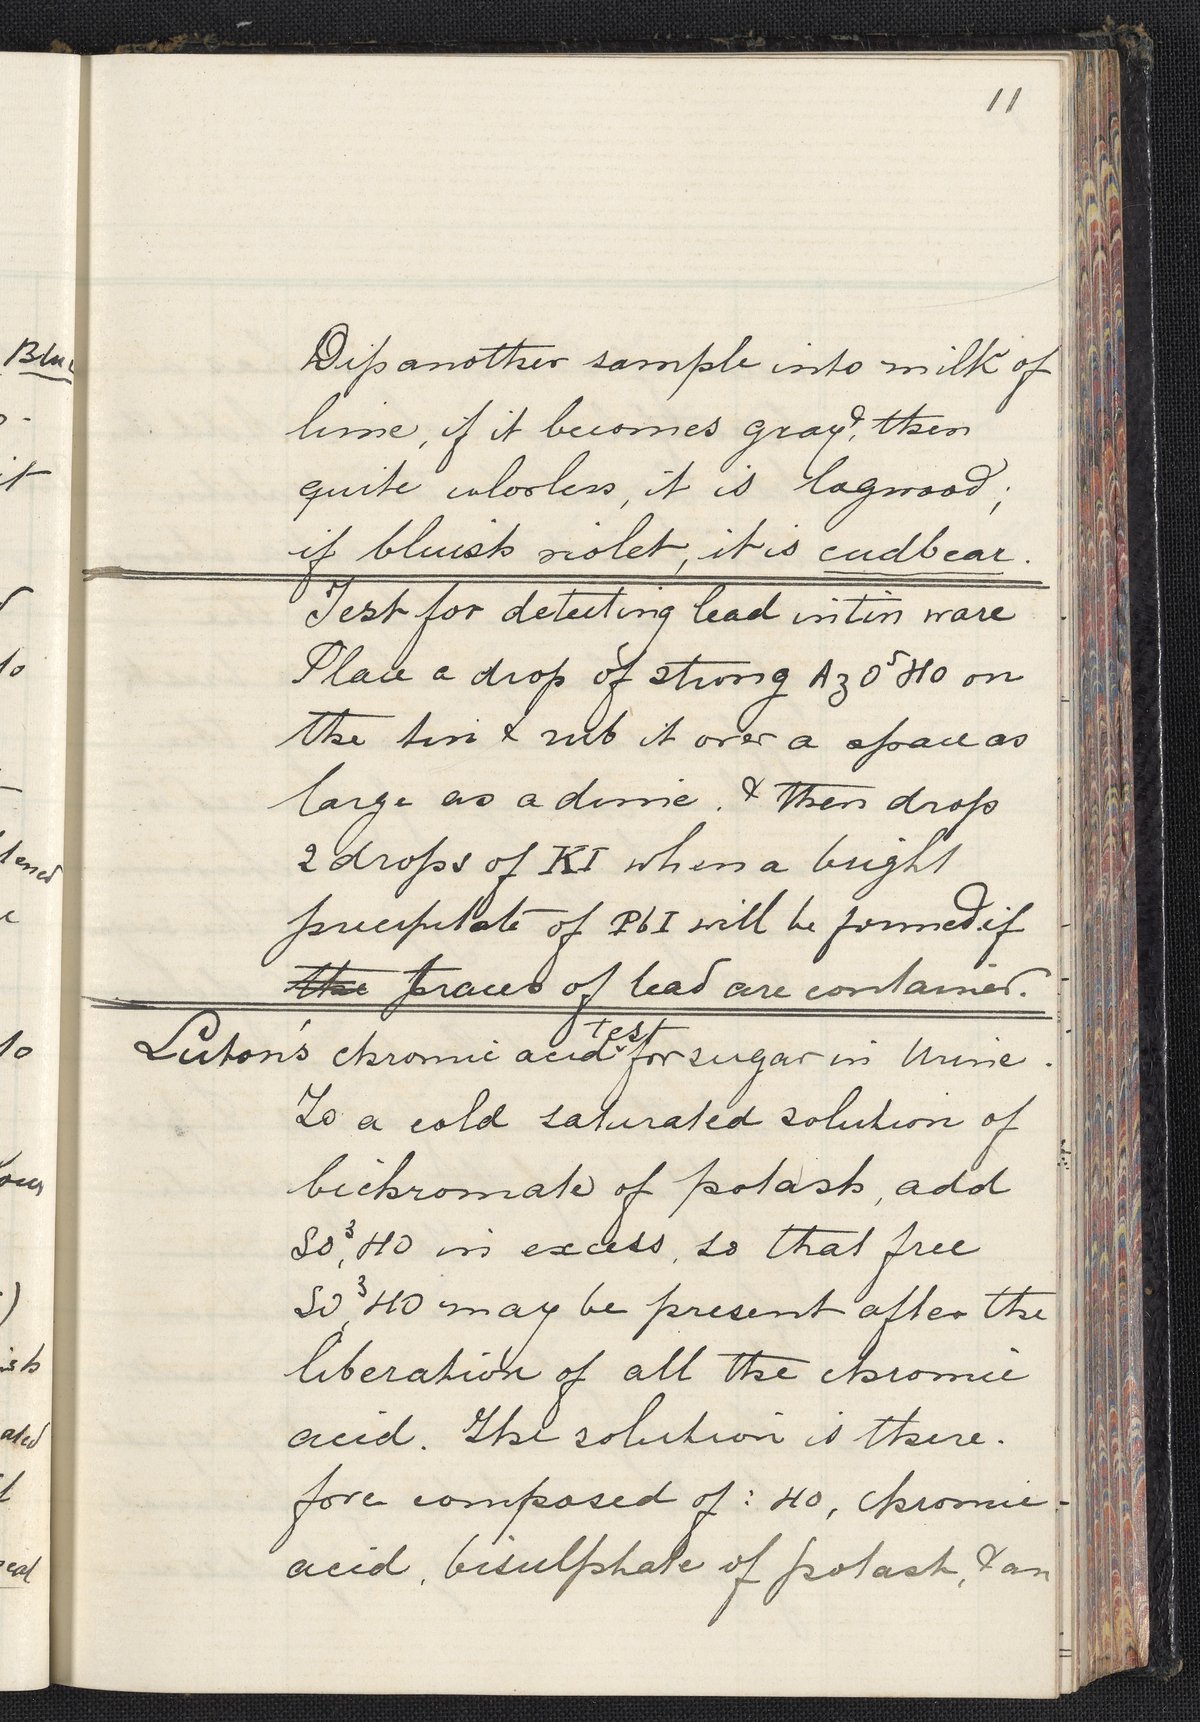 11
Dip another sample into milk of
lime, if it becomes gray & then
quite colorless, it is logwood;
if bluish violet, it is cudbear.
Test for detecting lead in tin ware
Place a drop of strong AzO⁵HO on
the tin & rub it over a space as
large as a dime. & then drop
2 drops of KI when a bright
precipitate of PbI will be formed if
the traces of lead are contained.
Luton's chromic acid test for sugar in Urine.
To a cold saturated solution of
bichromate of potash, add
SO³,HO in excess, so that free
SO³,HO may be present after the
liberation of all the chromic
acid. The solution is there-
fore composed of: HO, chromic
acid, bisulphate of potash, & an